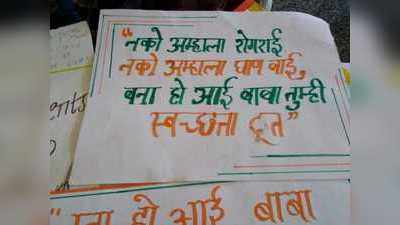 “नको अम्हाला रोगराई
नको अम्हाला घाण बाई,
बना हो आई बाबा तुम्ही
स्वच्छता दूत”
ents
“बना हो आई बाबा